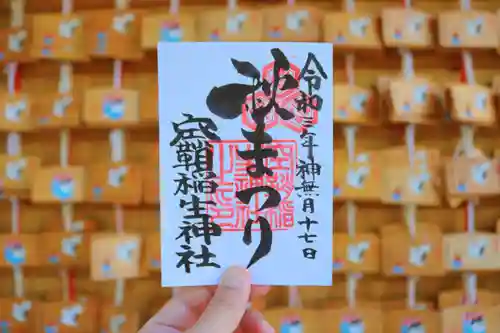 令和三年神無月十七日
秋まつり
空鞘稲生神社